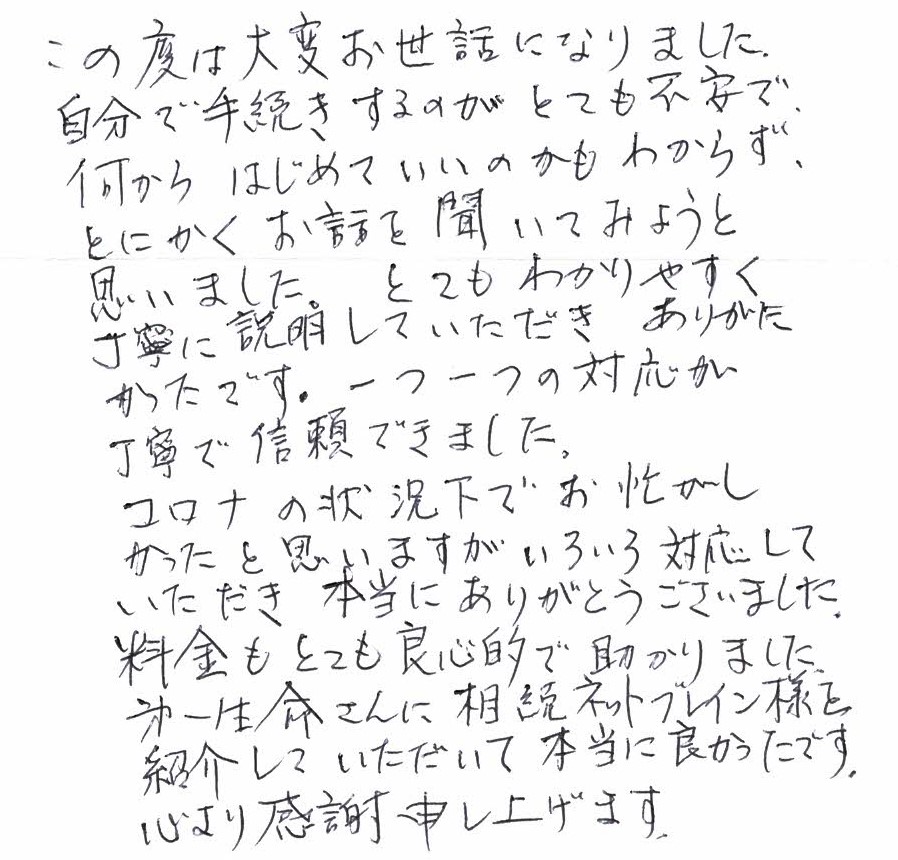 この度は大変お世話になりました.
自分で手続きするのがとても不安で、
何から はじめていいのかも わからず、
とにかく お話を 聞いてみようと
思いました。 とても わかりやすく
丁寧に説明していただき ありがた
かったです。一つ一つの対応が
丁寧で信頼できました。
コロナの状況下でお忙がし
かったと思いますがいろいろ対応して
いただき 本当にありがとうございました.
料金もとても良心的で助かりました.
第一生命さんに相続ネットブレイン様を
紹介していただいて本当に良かったです.
心より感謝申し上げます.